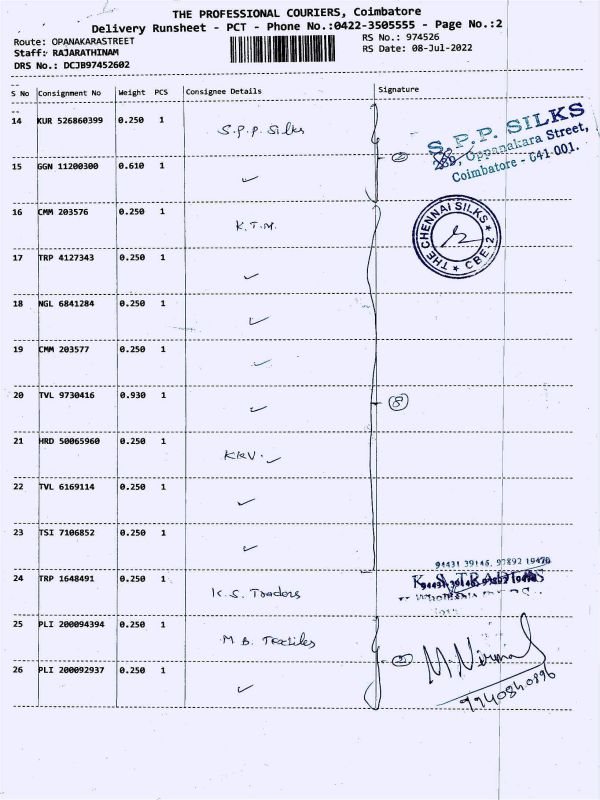 THE PROFESSIONAL COURIERS, Coimbatore
Delivery Runsheet - PCT - Phone No.:0422-3505555 - Page No.:2
Route: OPANAKARASTREET
RS No.: 974526
Staff: RAJARATHINAM
RS Date: 08-Jul-2022
DRS No.: DCJB97452602
S No Consignment No Weight PCS Consignee Details Signature
14 KUR 526860399 0.250 1 S.P.P. Silks
S.P.P. SILKS
239, Oppanakara Street,
Coimbatore - 641 001.
2
15 GGN 11200300 0.610 1 ✓
16 CMM 203576 0.250 1 K.T.M.
THE CHENNAI SILKS ★ CBE-2 ★
17 TRP 4127343 0.250 1 ✓
18 NGL 6841284 0.250 1 ✓
19 CMM 203577 0.250 1 ✓
20 TVL 9730416 0.930 1 ✓ 8
21 HRD 50065960 0.250 1 KKV. ✓
22 TVL 6169114 0.250 1 ✓
23 TSI 7106852 0.250 1 ✓
94431 39146, 97892 19470
24 TRP 1648491 0.250 1 K.S. Traders
K.S. TRADERS
25 PLI 200094394 0.250 1 M.B. Textiles
2 M. Nirmal
9940840896
26 PLI 200092937 0.250 1 ✓